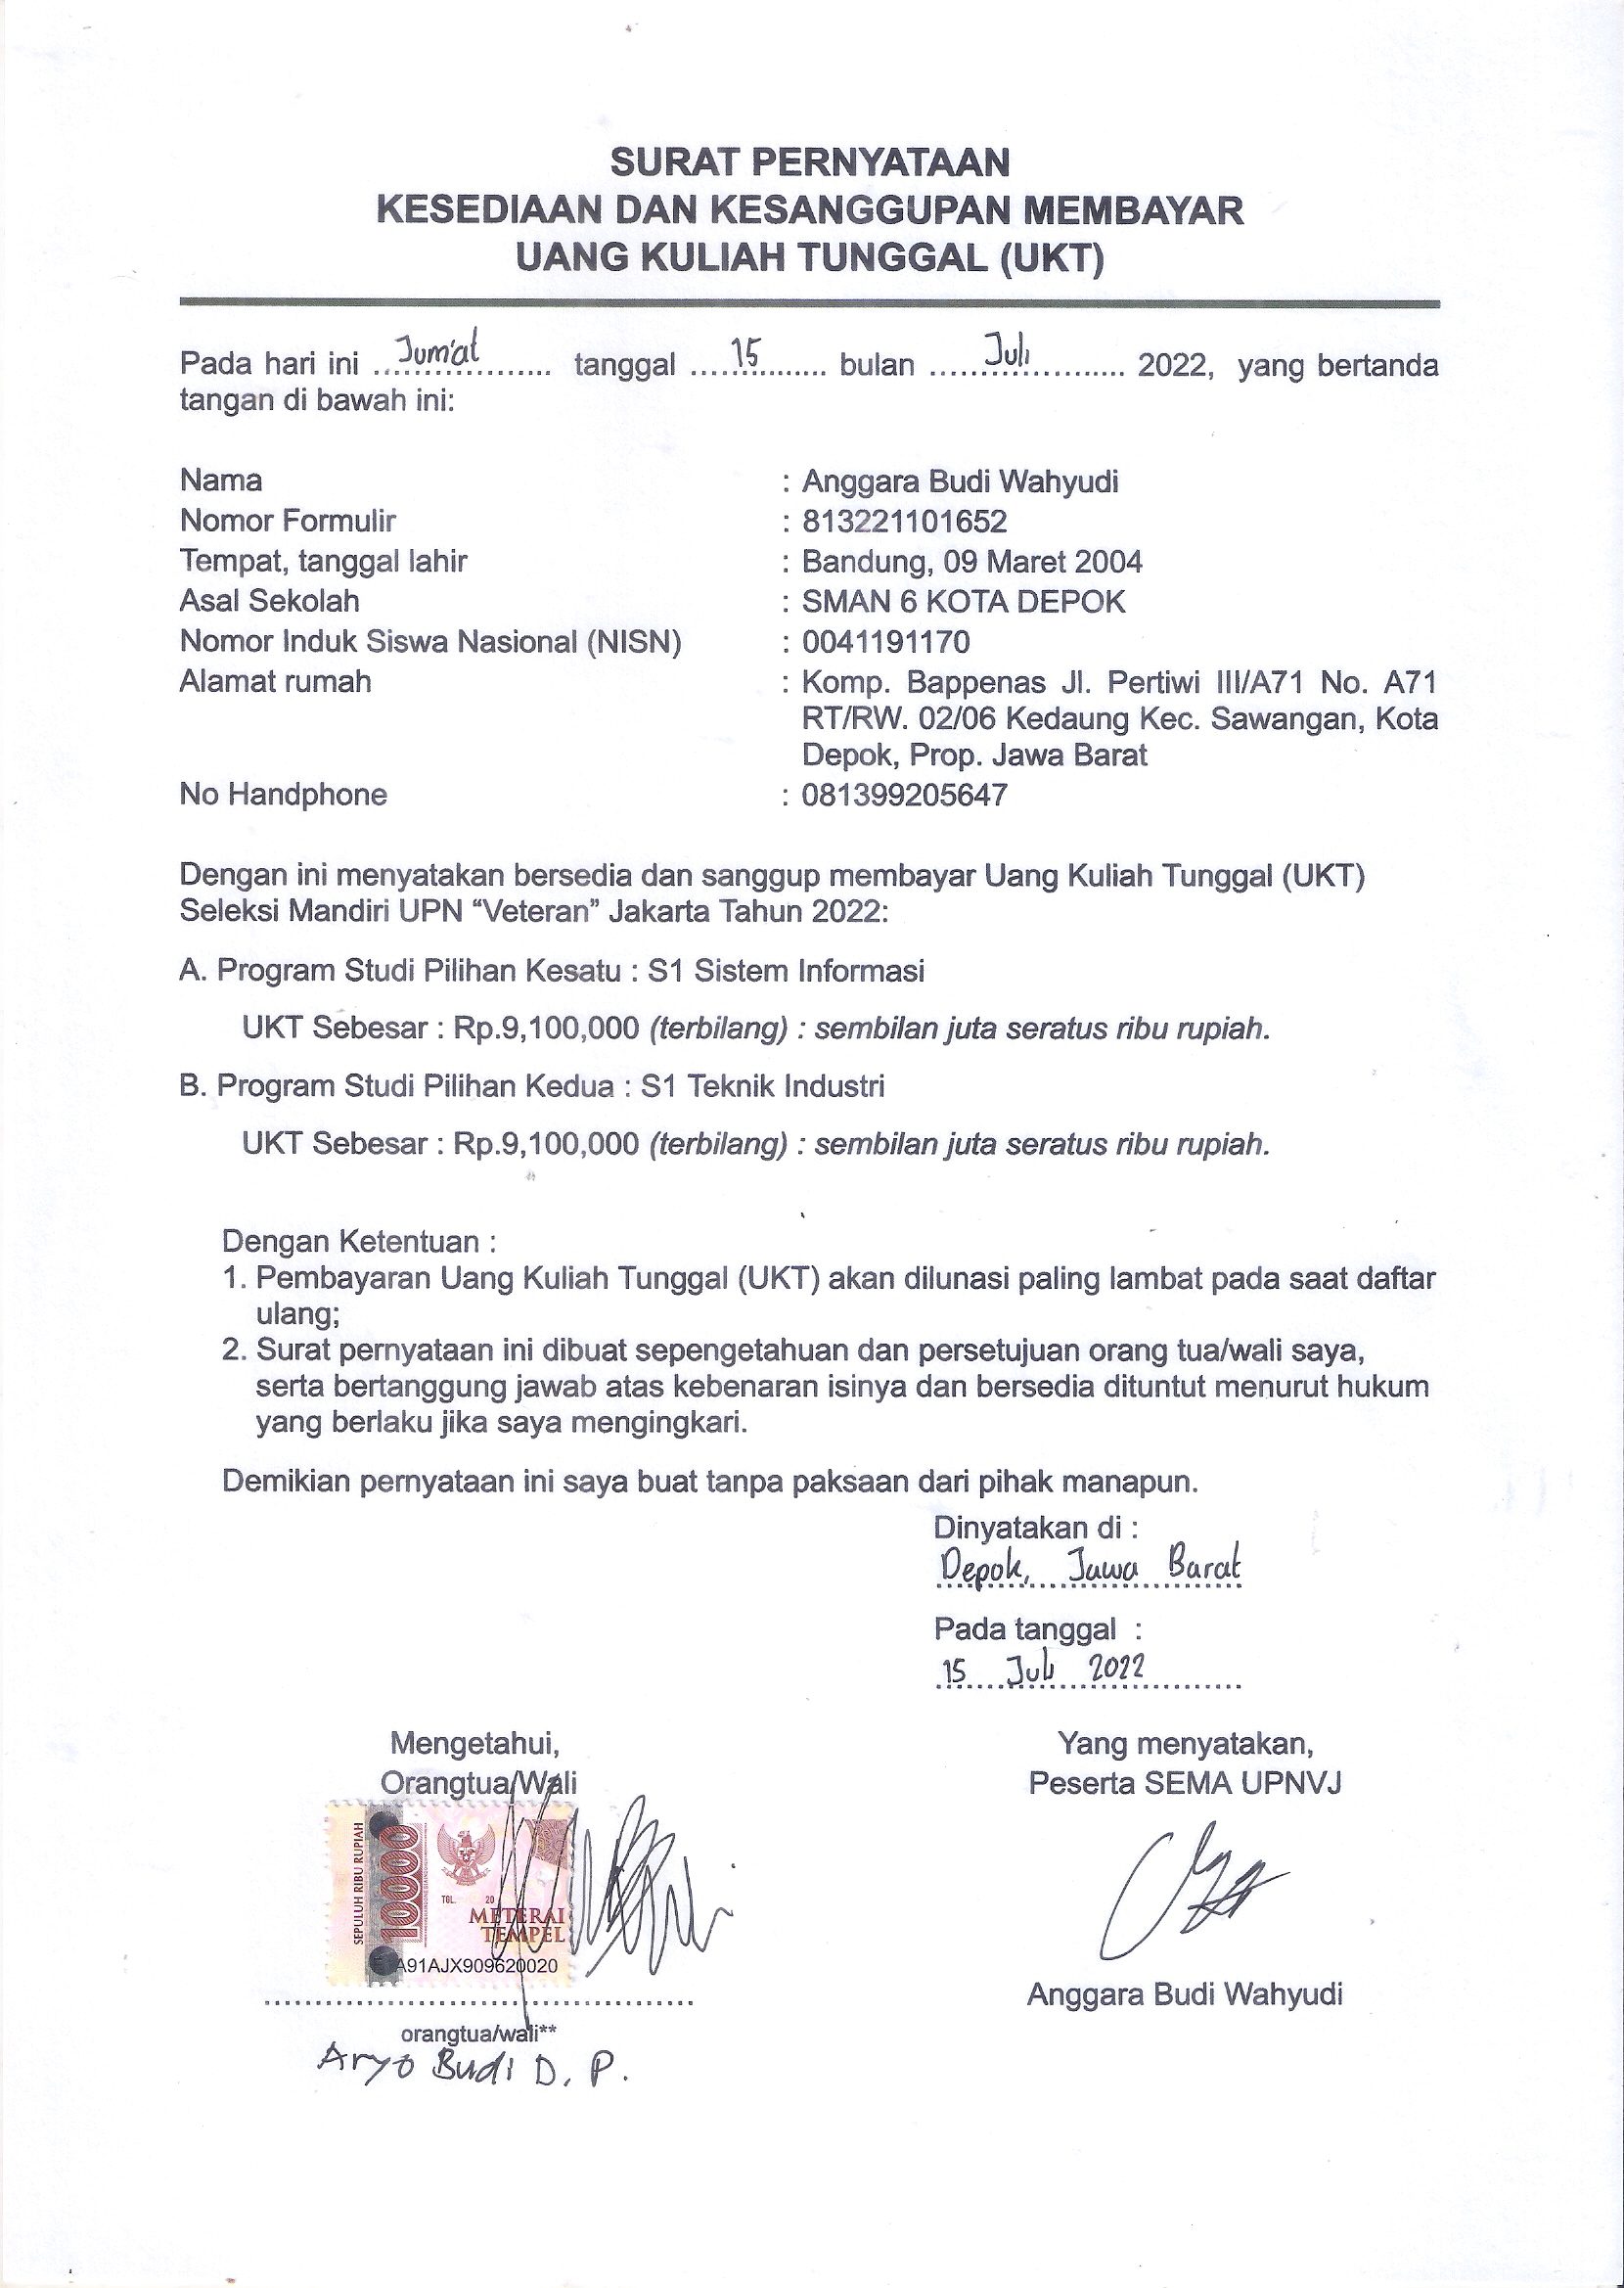 SURAT PERNYATAAN
KESEDIAAN DAN KESANGGUPAN MEMBAYAR
UANG KULIAH TUNGGAL (UKT)
Pada hari ini Jum'at tanggal 15 bulan Juli 2022, yang bertanda
tangan di bawah ini:
Nama : Anggara Budi Wahyudi
Nomor Formulir : 813221101652
Tempat, tanggal lahir : Bandung, 09 Maret 2004
Asal Sekolah : SMAN 6 KOTA DEPOK
Nomor Induk Siswa Nasional (NISN) : 0041191170
Alamat rumah : Komp. Bappenas Jl. Pertiwi III/A71 No. A71
RT/RW. 02/06 Kedaung Kec. Sawangan, Kota
Depok, Prop. Jawa Barat
No Handphone : 081399205647
Dengan ini menyatakan bersedia dan sanggup membayar Uang Kuliah Tunggal (UKT)
Seleksi Mandiri UPN “Veteran” Jakarta Tahun 2022:
A. Program Studi Pilihan Kesatu : S1 Sistem Informasi
UKT Sebesar : Rp.9,100,000 (terbilang) : sembilan juta seratus ribu rupiah.
B. Program Studi Pilihan Kedua : S1 Teknik Industri
UKT Sebesar : Rp.9,100,000 (terbilang) : sembilan juta seratus ribu rupiah.
Dengan Ketentuan :
1. Pembayaran Uang Kuliah Tunggal (UKT) akan dilunasi paling lambat pada saat daftar
ulang;
2. Surat pernyataan ini dibuat sepengetahuan dan persetujuan orang tua/wali saya,
serta bertanggung jawab atas kebenaran isinya dan bersedia dituntut menurut hukum
yang berlaku jika saya mengingkari.
Demikian pernyataan ini saya buat tanpa paksaan dari pihak manapun.
Dinyatakan di :
Depok, Jawa Barat
Pada tanggal :
15 Juli 2022
Mengetahui,
Orangtua/Wali
Yang menyatakan,
Peserta SEMA UPNVJ
SEPULUH RIBU RUPIAH
10000
TGL. 20
METERAI
TEMPEL
A91AJX909620020
Anggara Budi Wahyudi
orangtua/wali**
Aryo Budi D. P.